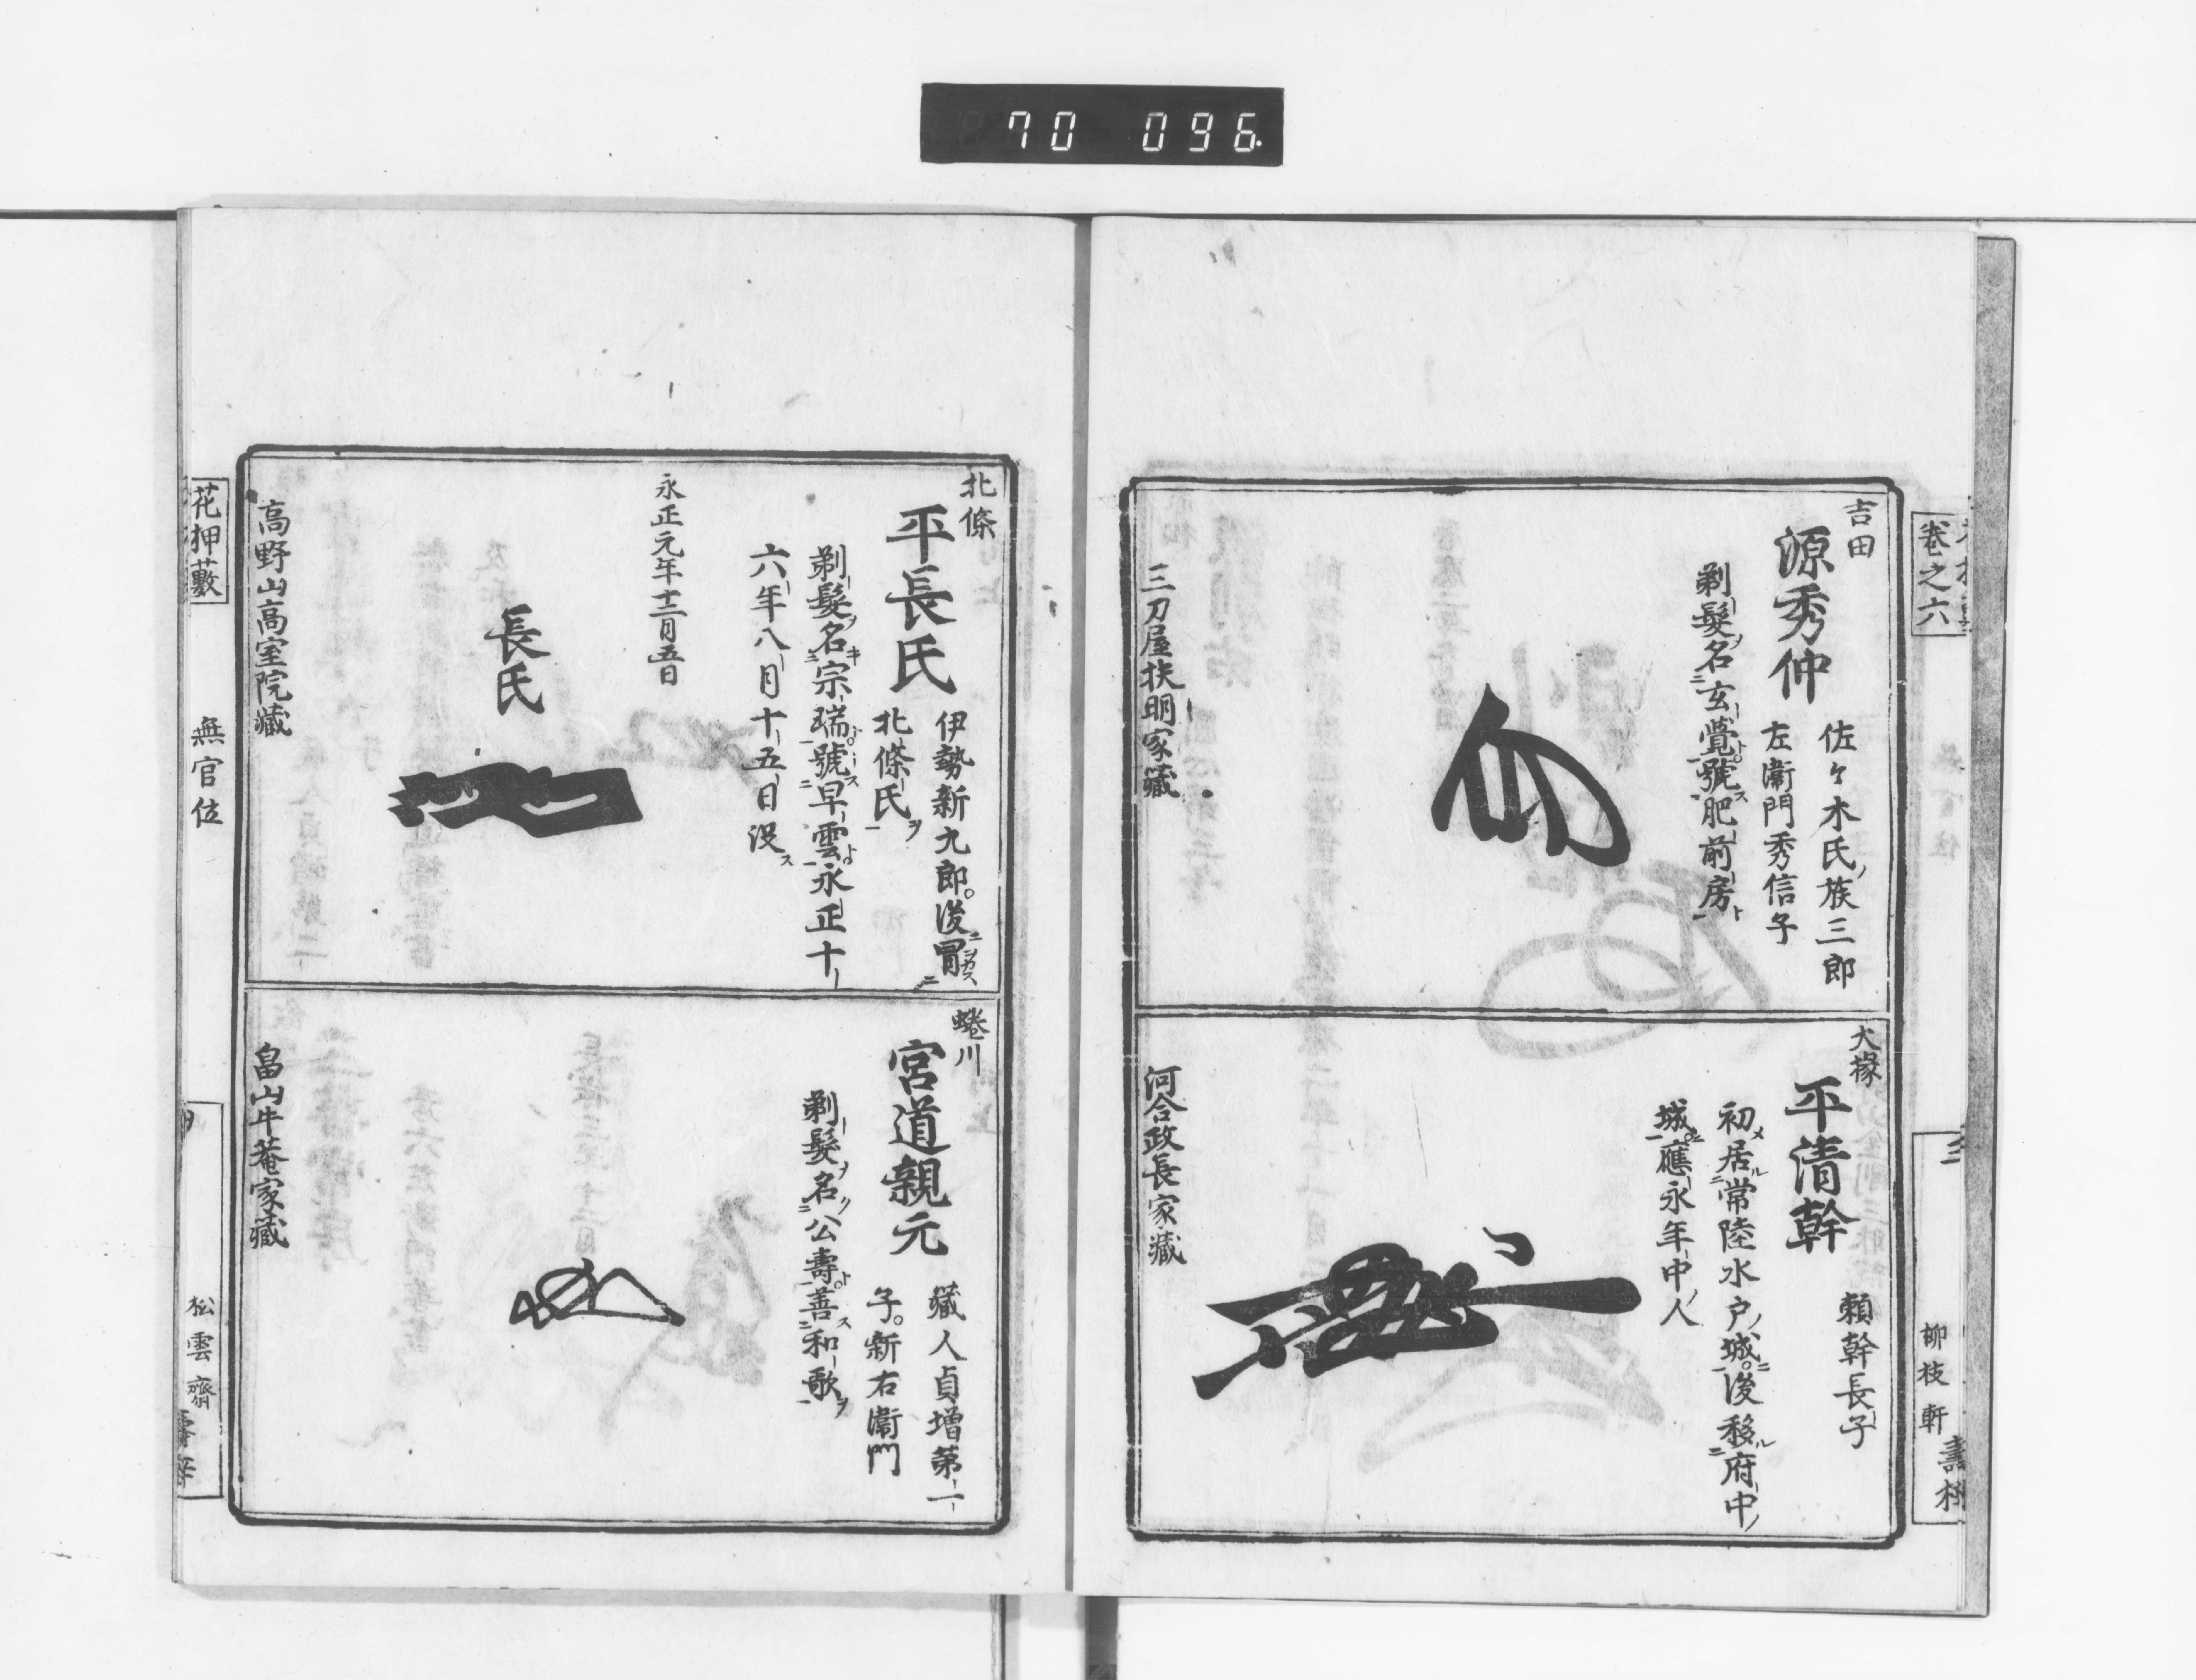 70 096
卷之六
三
柳枝軒
吉田
源秀仲
佐々木氏ノ族三郎
左衞門秀信子
剃髮ヲ名ニ玄覺ト號ス肥前房ト
三刀屋扶明家藏
大掾
平清幹
頼幹長子
初メ居ル常陸水戶ノ城ニ後移ル府中ノ
城ニ應永年中ノ人
河合政長家藏
北條
平長氏
伊勢新九郎後冒ス
北條氏ヲ
剃髮ヲ名キ宗瑞ト號ス早雲ト永正十
六年八月十五日沒ス
永正元年十二月五日
長氏
高野山高室院藏
蜷川
宮道親元
藏人貞增第一
子新右衞門
剃髮ヲ名ク公壽ト善ス和歌ヲ
畠山牛菴家藏
花押藪
無官位
松雲齋